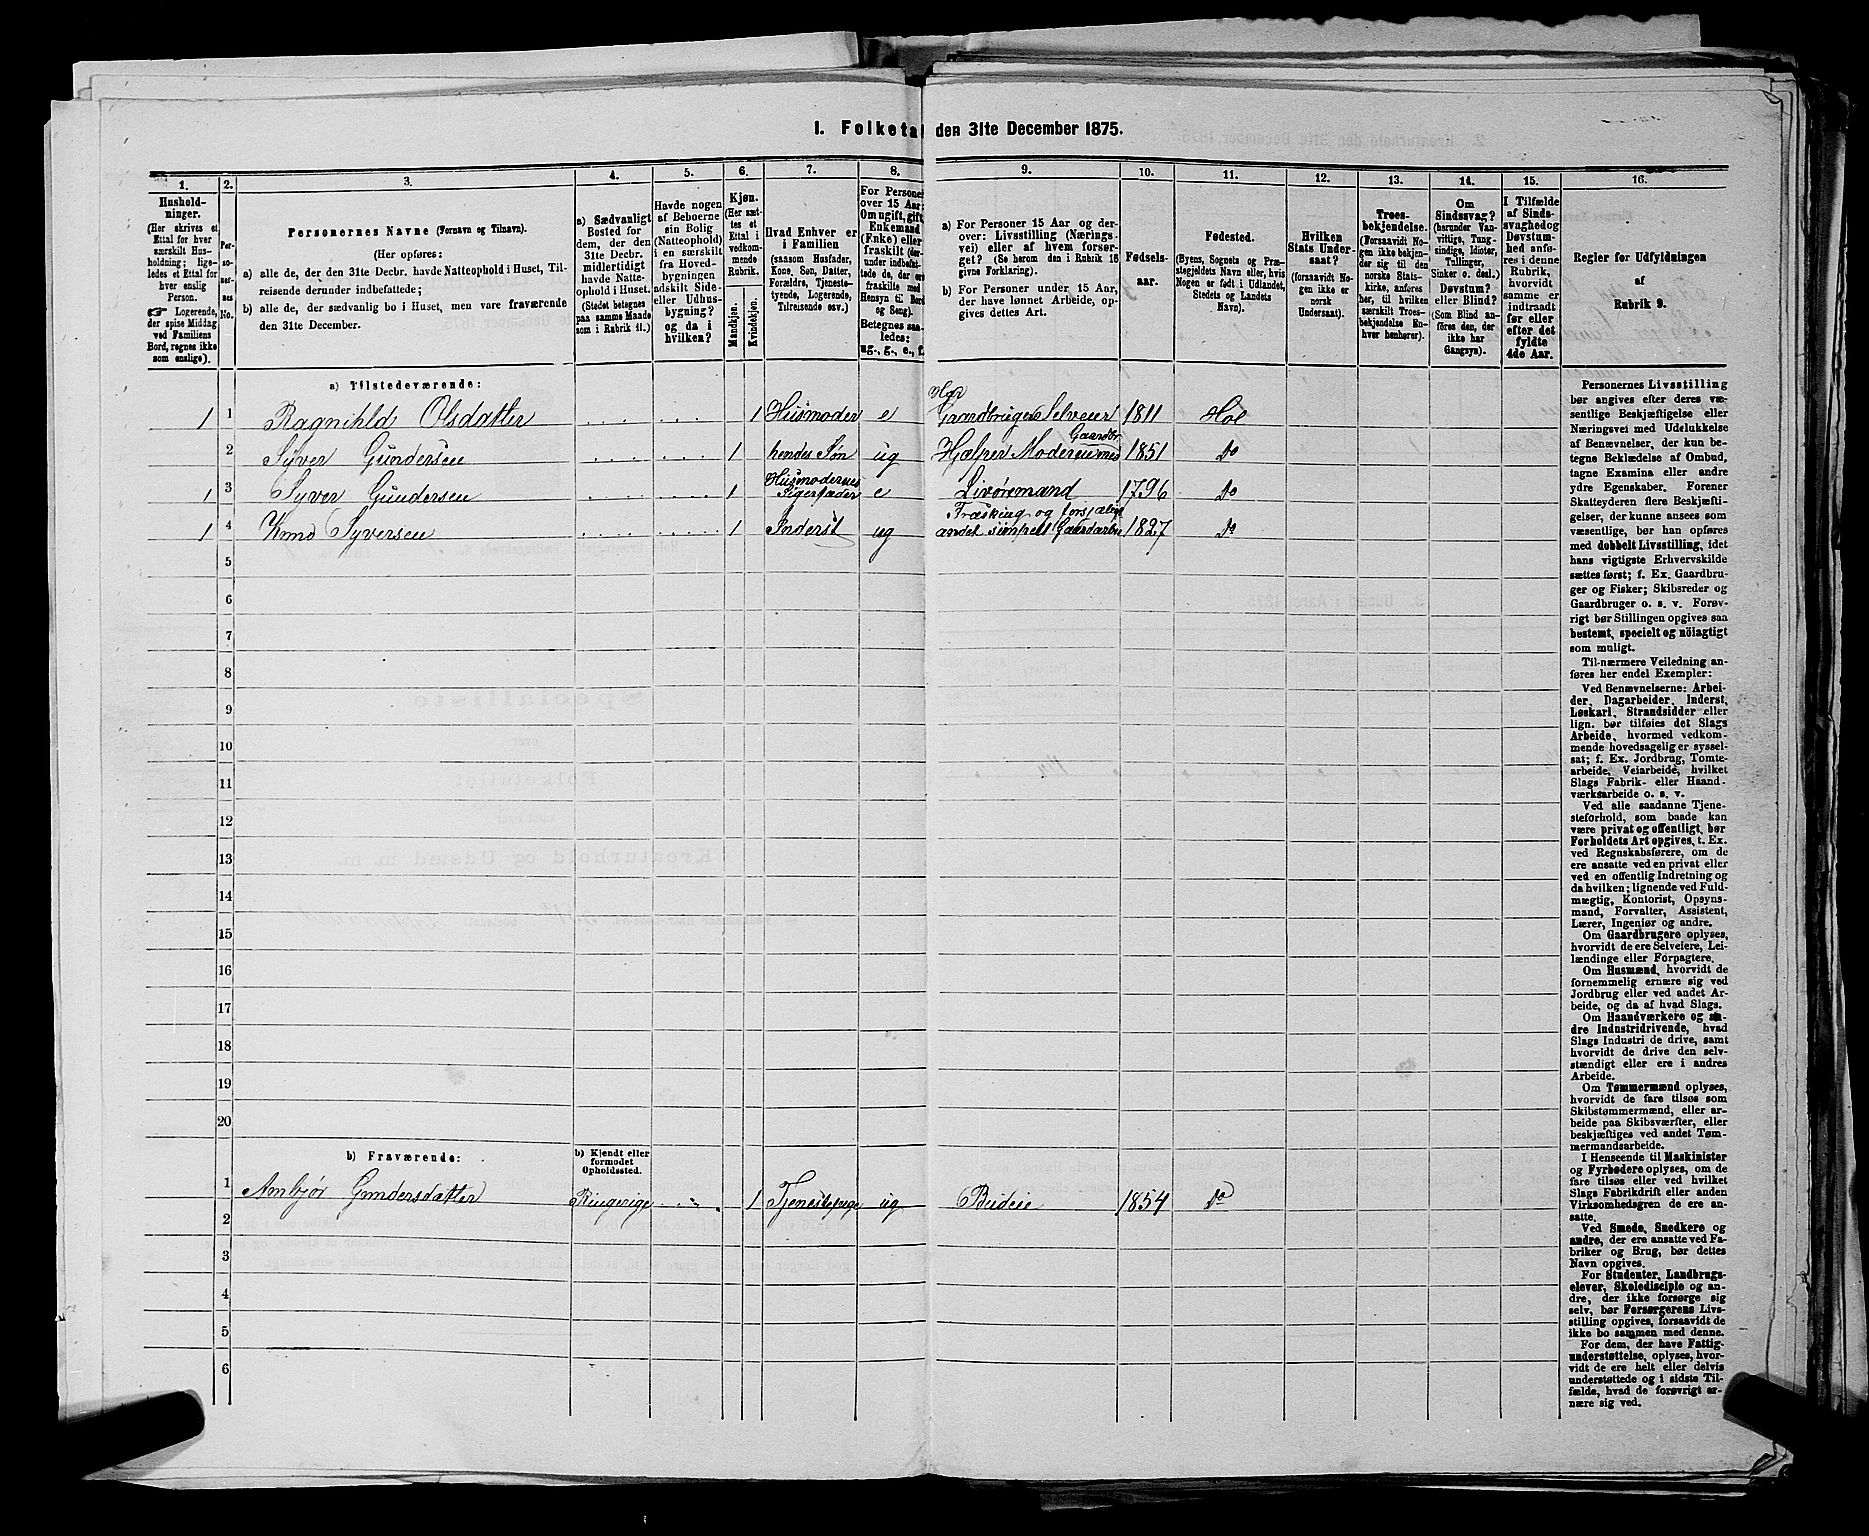 I. Folketa den 31te December 1875.
1. 2. 3. 4. 5. 6. 7. 8. 9. 10. 11. 12. 13. 14. 15. 16.
Hushold-
ninger.
(Her skrives et
Ettal for hver
særskilt Hus-
holdning; lige-
ledes et Ettal for
hver enslig
Person.
☞ Logerende,
der spise Middag
ved Familiens
Bord, regnes ikke
som enslige).
Per-
so-
ner-
nes
No.
Personernes Navne (Fornavn og Tilnavn).
(Her opføres:
a) alle de, der den 31te Decbr. havde Natteophold i Huset, Til-
reisende derunder indbefattede;
b) alle de, der sædvanlig bo i Huset, men vare fraværende
den 31te December.
a) Sædvanligt
Bosted for
dem, der den
31te Decbr.
midlertidigt
havde Natte-
ophold i Huset.
(Stedet betegnes
paa samme Maade
som i Rubrik 11.)
Havde nogen
af Beboerne
sin Bolig
(Natteophold)
i en særskilt
fra Hoved-
bygningen
adskilt Side-
eller Udhus-
bygning?
og da i
hvilken?
Kjøn.
(Her sæt-
tes et
Ettal i
vedkom-
mende
Rubrik.
Mandkjøn.
Kvindekjøn.
Hvad Enhver er
i Familien
(saasom Husfader,
Kone, Søn, Datter,
Forældre, Tjeneste-
tyende, Logerende,
Tilreisende osv.)
For Personer
over 15 Aar:
Om ugift, gift,
Enkemand
(Enke) eller
fraskilt
Betegnes saa-
ledes:
ug., g., e., f.
a) For Personer 15 Aar og der-
over: Livsstilling (Nærings-
vei) eller af hvem forsør-
get? (Se herom den i Rubrik 16
givne Forklaring).
b) For Personer under 15 Aar,
der have lønnet Arbeide, op-
gives dettes Art.
Fødsels-
aar.
Fødested.
(Byens, Sognets og Præ-
stegjeldets Navn eller, hvis
Nogen er født i Udlandet,
Stedets og Landets
Navn).
Hvilken
Stats Under-
saat?
(forsaavidt No-
gen ikke er
norsk
Undersaat).
Troes-
bekjendelse.
(Forsaavidt No-
gen ikke bekjen-
der sig til den
norske Stats-
kirke, anføres
her, til hvilken
særskilt Troes-
bekjendelse En-
hver henhører).
Om
Sindssvag?
(herunder Van-
vittige, Tung-
sindige, Idioter,
Tullinger,
Sinker o. desl.)
Døvstum?
eller Blind?
(Som Blind an-
føres den, der
ikke har
Gangsyn).
I Tilfælde
af Sinds-
svaghed og
Døvstum-
hed anfø-
res i denne
Rubrik,
hvorvidt
samme er
indtraadt
før eller
efter det
fyldte
4de Aar.
Regler for Udfyldningen
af
Rubrik 9.
a) Tilstedeværende:
1 1 Ragnihld Olsdatter 1 Husmoder e Har Gaardbruger Selveier 1811 Hol
2 Syver Gundersen 1 hendes Søn ug Hjælper Moderen med Gaardbr 1851 Do
1 3 Syver Gundersen 1 Husmodernes Sigerfader e Livøremand 1796 Do
1 4 Knud Syversen 1 Inderst ug Træsking og forsjælligt andet simpelt Gaardarbei 1827 Do
5
6
7
8
9
10
11
12
13
14
15
16
17
18
19
20
b) Fraværende:
b) Kjendt eller
formodet
Opholdssted.
1 Ambjør Gundersdatter Ringerige 1 Tjenestepige ug Budeie 1854 Do
2
3
4
5
6
Personernes Livsstilling
bør angives efter deres væ-
sentlige Beskjæftigelse eller
Næringsvei med Udelukkelse
af Benævnelser, der kun be-
tegne Beklædelse af Ombud,
tagne Examina eller andre
ydre Egenskaber. Forener
Skatteyderen flere Beskjæfti-
gelser, der kunne ansees som
væsentlige, bør han opføres
med dobbelt Livsstilling, idet
hans vigtigste Erhvervskilde
sættes først; f. Ex. Gaardbru-
ger og Fisker; Skibsreder og
Gaardbruger o. s. v. Forøv-
rigt bør Stillingen opgives saa
bestemt, specielt og nöiagtigt
som muligt.
Til nærmere Veiledning an-
føres her endel Exempler:
Ved Benævnelserne: Arbei-
der, Dagarbeider, Inderst,
Løskarl, Strandsidder eller
lign. bør tilføies det Slags
Arbeide, hvormed vedkom-
mende hovedsagelig er syssel-
sat; f. Ex. Jordbrug, Tomte-
arbeide, Veiarbeide, hvilket
Slags Fabrik- eller Haand-
værksarbeide o. s. v.
Ved alle saadanne Tjene-
steforhold, som baade kan
være privat og offentligt, bør
Forholdets Art opgives, t. Ex.
ved Regnskabsførere, om de
ere ansatte ved en privat eller
ved en offentlig Indretning og
da hvilken; lignende ved Fuld-
mægtig, Kontorist, Opsyns-
mand, Forvalter, Assistent,
Lærer, Ingeniør og andre.
Om Gaardbrugere oplyses,
hvorvidt de ere Selveiere, Lei-
lændinge eller Forpagtere.
Om Husmænd, hvorvidt de
fornemmelig ernære sig ved
Jordbrug eller ved andet Ar-
beide, og da af hvad Slags.
Om Haandværkere og an-
dre Industridrivende, hvad
Slags Industri de drive, samt
hvorvidt de drive den selv-
stændigt eller ere i andres
Arbeide.
Om Tømmermænd oplyses,
hvorvidt de fare tilsøs som
Skibstømmermænd, eller ar-
beide paa Skibsværfter, eller
beskjæftiges ved andet Tøm-
mermandsarbeide.
I Henseende til Maskinister
og Fyrbødere oplyses, om de
fare tilsøs eller ved hvilket
Slags Fabrikdrift eller anden
Virksomhedsgren de ere an-
satte.
Ved Smede, Snedkere og
andre, der ere ansatte ved Fa-
briker og Brug, bør dettes
Navn opgives.
For Studenter, Landbrugs-
elever, Skoledisciple og an-
dre, der ikke forsørge sig
selv, bør Forsørgerens Livs-
stilling opgives, forsaavidt de
ikke bo sammen med denne.
For dem, der have Fattig-
understøttelse, oplyses, hvor-
vidt de ere helt eller delvis
understøttede og i sidste Til-
fælde, hvad de forøvrigt er-
nære sig ved.